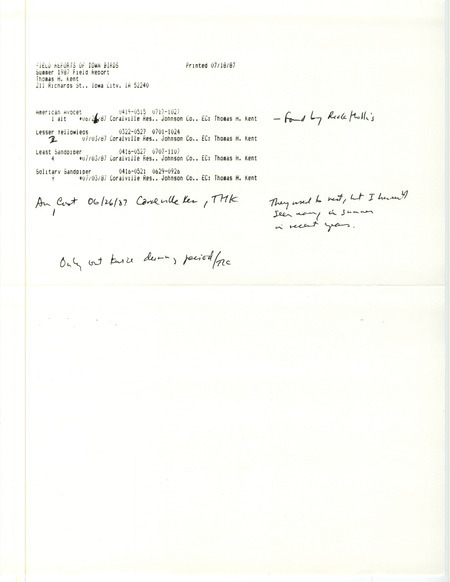 FIELD REPORTS OF IOWA BIRDS Printed 07/18/87
Summer 1987 Field Report
Thomas H. Kent
211 Richards St., Iowa City, IA 52240
American Avocet 0419-0515 0717-1027
1 alt *06/26/87 Coralville Res., Johnson Co., EC; Thomas H. Kent - found by Rick Hollis
Lesser Yellowlegs 0322-0527 0701-1024
2 07/03/87 Coralville Res., Johnson Co., EC; Thomas H. Kent
Least Sandpiper 0416-0527 0707-1107
4 *07/03/87 Coralville Res., Johnson Co., EC; Thomas H. Kent
Solitary Sandpiper 0416-0521 0629-0926
Y *07/03/87 Coralville Res., Johnson Co., EC; Thomas H. Kent
Am Coot 06/26/87 Coralville Res, THK
1
They used to nest, but I haven't
seen many in summer
in recent years.
Only out twice during period/